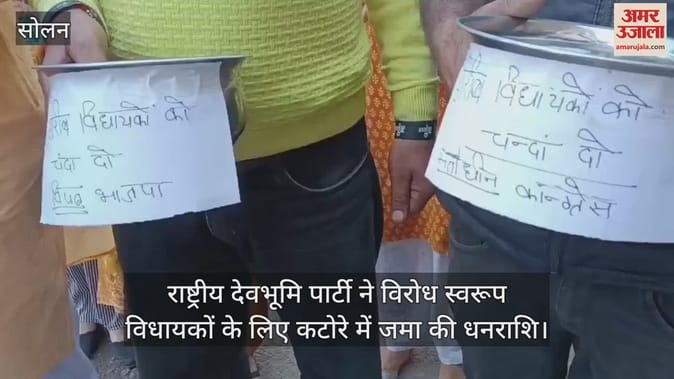 सोलन
अमर
उजाला
amarujala.com
विधायकों को
चंदा दो
विपक्ष भाजपा
विधायकों को
चन्दां दो
कान्ग्रेस
राष्ट्रीय देवभूमि पार्टी ने विरोध स्वरूप
विधायकों के लिए कटोरे में जमा की धनराशि।